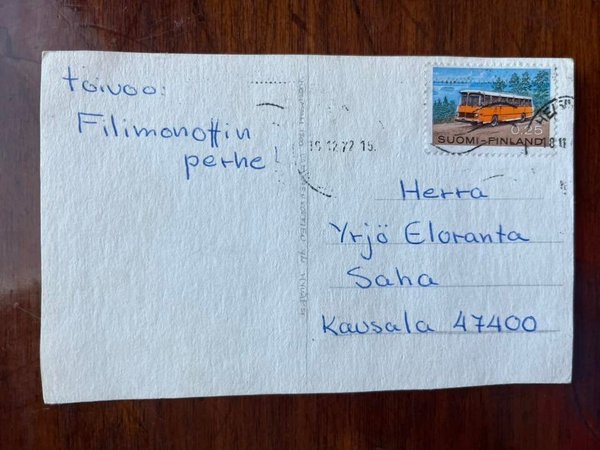 toivoo:
Filimonoffin
perhe!
0,25
SUOMI-FINLAND
Herra
Yrjö Eloranta
Saha
Kausala 47400